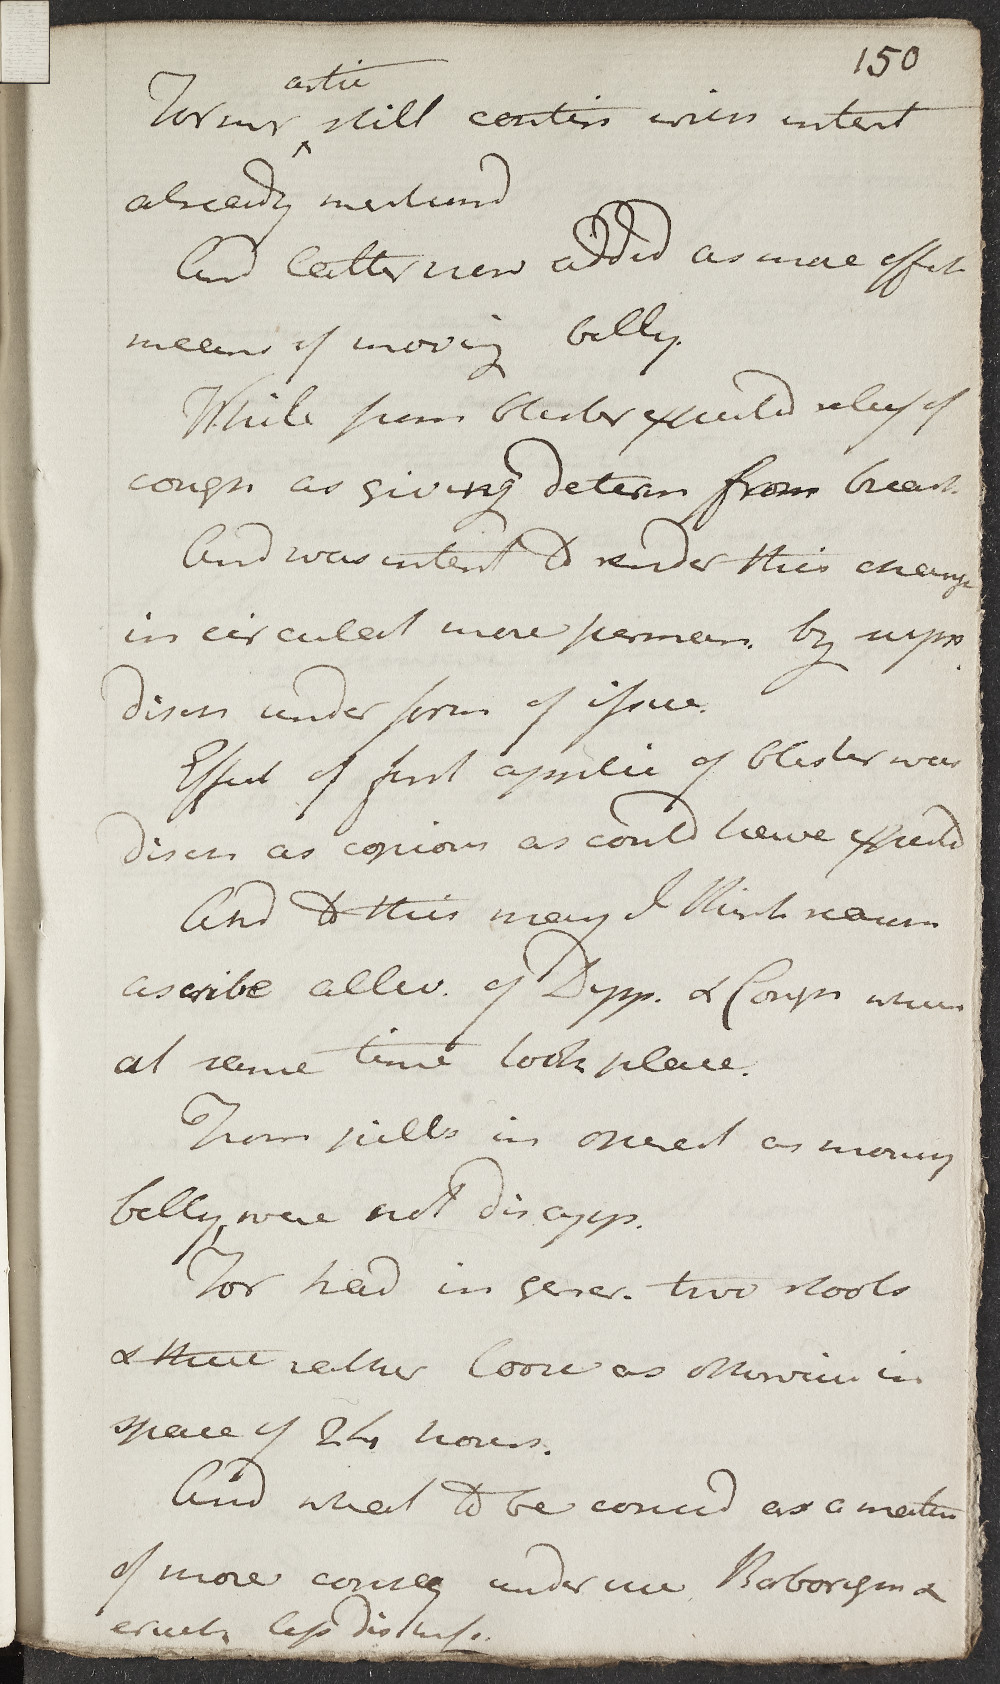 150
Former artic still contin with intent
already mentiond
And latter now added as more effect
means of moving belly.
While from blister expected relief of
cough as giving determ from breast.
And was intent to render this change
in circulat more perman. by supp
disch under form of issue.
Effect of first applic of blister was
disch as copious as could have expected
And to this may I think reason
ascribe allev. of Dysp. & Cough which
at same time took place.
From pills in operat as moving
belly were not disapp.
For had in gener. two stools
& these rather loose as otherwise in
space of 24 hours.
And what to be considd as a matter
of more conseq under use Borborygm &
eruct. less distress.